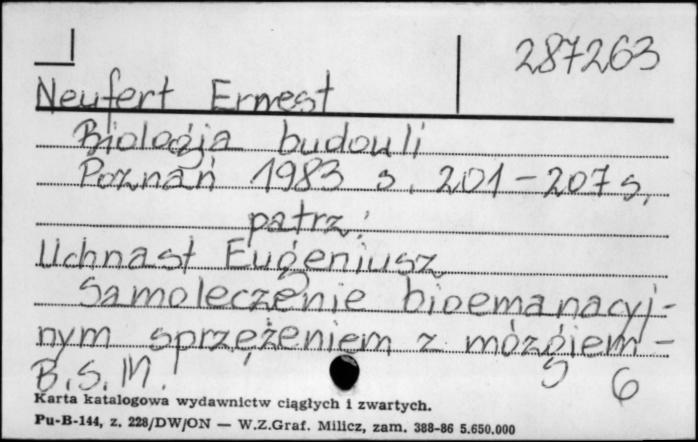 287263
Neufert Ernest
Biologja budowli
Poznań 1983 s. 201-207 s.
patrz:
Uchnast Eugeniusz
Samoleczenie bioemanacyj-
nym sprzężeniem z mózgiem -
B.S.M. 6
Karta katalogowa wydawnictw ciągłych i zwartych.
Pu-B-144, z. 228/DW/ON — W.Z.Graf. Milicz, zam. 388-86 5.650.000